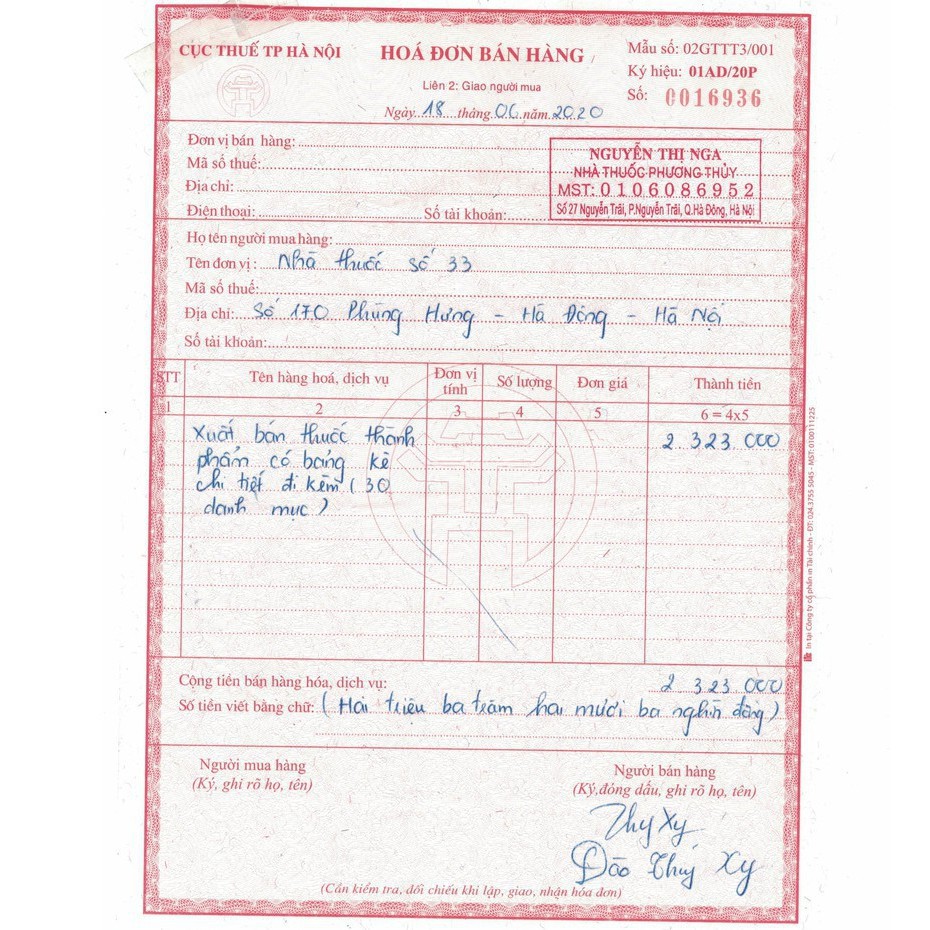 CỤC THUẾ TP HÀ NỘI
HOÁ ĐƠN BÁN HÀNG
Liên 2: Giao người mua
Ngày 18 tháng 06 năm 2020
Mẫu số: 02GTTT3/001
Ký hiệu: 01AD/20P
Số: 0016936
Đơn vị bán hàng:
Mã số thuế:
Địa chỉ:
Điện thoại: Số tài khoản:
NGUYỄN THỊ NGA
NHÀ THUỐC PHƯƠNG THỦY
MST: 0106086952
Số 27 Nguyễn Trãi, P.Nguyễn Trãi, Q.Hà Đông, Hà Nội
Họ tên người mua hàng:
Tên đơn vị: Nhà thuốc số 33
Mã số thuế:
Địa chỉ: Số 170 Phùng Hưng - Hà Đông - Hà Nội
Số tài khoản:
STT Tên hàng hoá, dịch vụ Đơn vị tính Số lượng Đơn giá Thành tiền
1 2 3 4 5 6 = 4x5
Xuất bán thuốc thành 2 323 000
phẩm có bảng kê
chi tiết đi kèm (30
danh mục)
Cộng tiền bán hàng hóa, dịch vụ: 2 323.000
Số tiền viết bằng chữ: (Hai triệu ba trăm hai mươi ba nghìn đồng)
Người mua hàng
(Ký, ghi rõ họ, tên)
Người bán hàng
(Ký,đóng dấu, ghi rõ họ, tên)
Đào Thúy Xy
(Cần kiểm tra, đối chiếu khi lập, giao, nhận hóa đơn)
In tại Công ty cổ phần in Tài chính - ĐT: 024.3755 5045 - MST: 0100111225